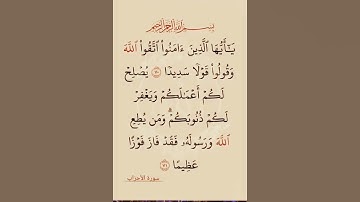 بسم الله الرحمن الرحيم
يَـٰٓأَيُّهَا ٱلَّذِينَ ءَامَنُوا۟ ٱتَّقُوا۟ ٱللَّهَ
وَقُولُوا۟ قَوْلًا سَدِيدًا ٧٠ يُصْلِحْ
لَكُمْ أَعْمَـٰلَكُمْ وَيَغْفِرْ
لَكُمْ ذُنُوبَكُمْ ۗ وَمَن يُطِعِ
ٱللَّهَ وَرَسُولَهُۥ فَقَدْ فَازَ فَوْزًا
عَظِيمًا ٧١
سورة الأحزاب